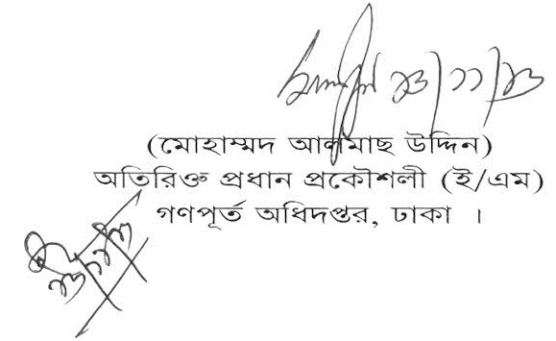 ২৩/১১/২৩
(মোহাম্মদ আলমাছ উদ্দিন)
অতিরিক্ত প্রধান প্রকৌশলী (ই/এম)
গণপূর্ত অধিদপ্তর, ঢাকা ।